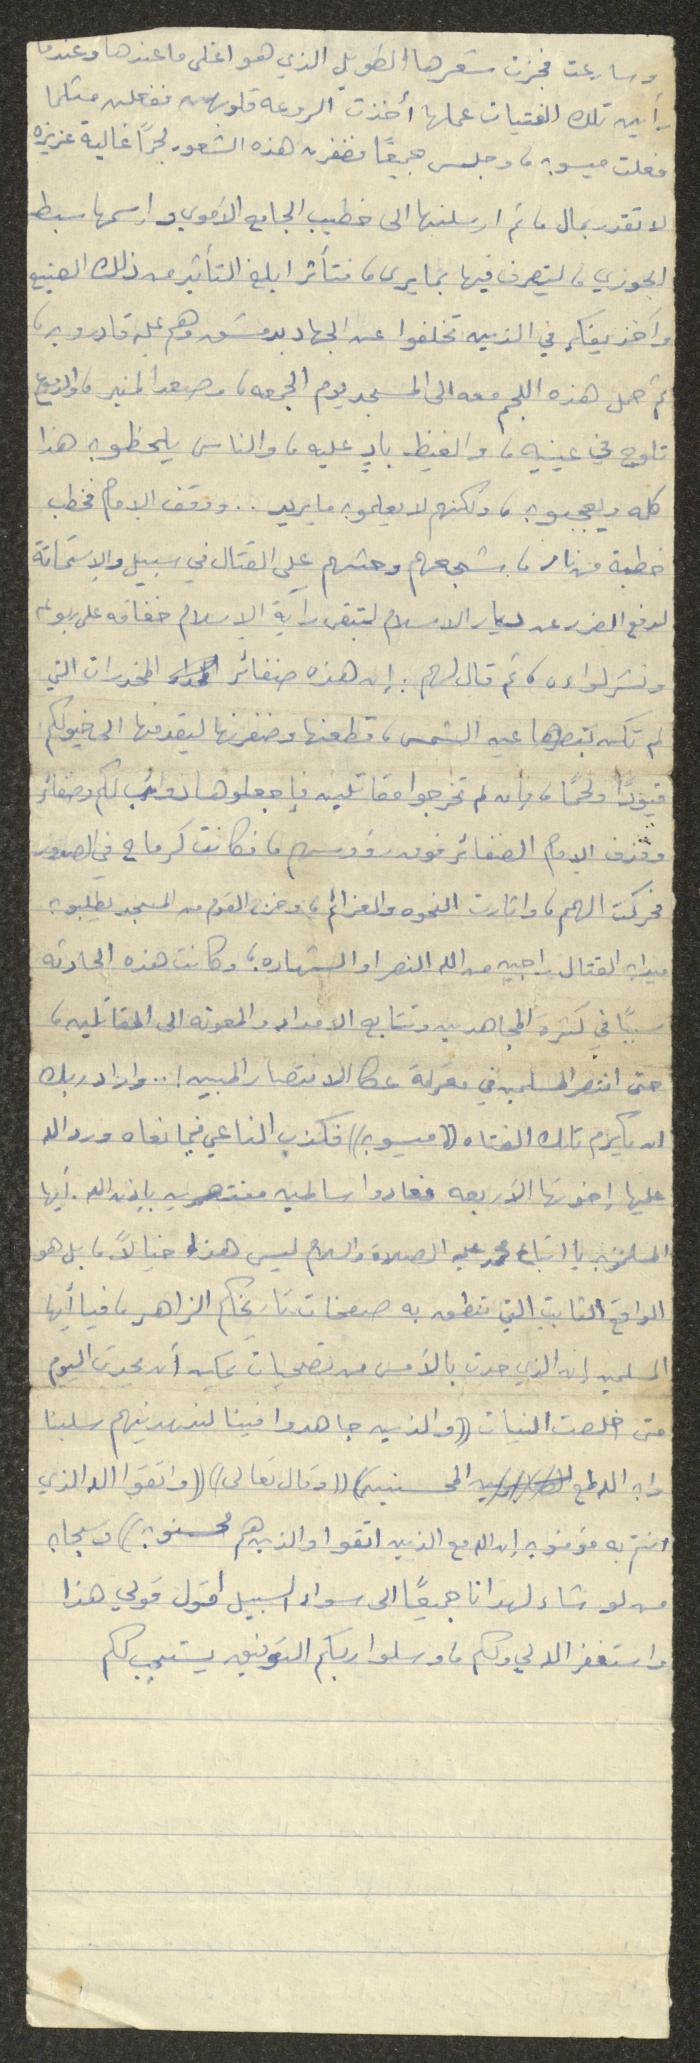 وسارعت فجزت شعرها الطويل الذي هو اغلى ما عندها وعندما
رأين تلك الفتيات عملها أخذت الروعه قلوبهن ففعلن مثلما
فعلت ميسون، وجلسن جميعًا فضفرن هذه الشعور لجمًا غالية عزيزه
لا تقدر بمال، ثم ارسلنها الى خطيب الجامع الأموي واسمها سبط
الجوزي، ليتصرف فيها بما يرى، فتأثر ابلغ التأثير من ذلك الصنيع
وأخذ يفكر في الذين تخلفوا عن الجهاد بدمشق وهم عليه قادرون،
ثم حمل هذه اللجم معه الى المسجد يوم الجمعه، وصعد المنبر، والدموع
تلوح في عينيه، والغيظ بادٍ عليه، والناس يلحظون هذا
كله ويعجبون، ولكنهم لا يعلمون ما يريد .. ووقف الإمام فخطب
خطبة من نار، يشجعهم وحثهم على القتال في سبيل والإستماتة
لدفع الضرر عن ديار الاسلام لتبقى رآية الإسلام خفاقه على ربوعه
ونشر لواءه، ثم قال لهم: إن هذه ضفائر المخدرات التي
لم تكن تبصرها عين الشمس، قطعنها وضفرنها ليقدمنها الى خيولكم
قيودًا ولجمًا، فإن لم تخرجوا مقاتلين فإجعلوها ذوائب لكم وضفائر
وقذف الإمام الضفائر فوق رؤوسهم، فكانت كرماح في الصدور
فحركت الهمم، واثارت النخوه والعزائم، وخرج القوم من المسجد يطلبون
ميدان القتال راجين من الله النصر او الشهاده، وكانت هذه الحادثه
سببًا في كثرة المجاهدين وتتابع الامداد والمعونه الى المقاتلين،
حتى انتصر المسلمين في معركة عكا الانتصار المبين!.. واراد ربك
ان يكرم تلك الفتاه ((ميسون)) فكذب الناعي فيما نعاه ورد الله
عليها إخوتها الأربعه فعادوا سالمين منتصرين بإذن الله. أيها
المسلمون يا اتباع محمد عليه الصلاة والسلام ليس هذا خيالاً، بل هو
الواقع الثابت التي تنطق به صفحات تاريخكم الزاهر، فيا أيها
المسلمين إن الذي حدث بالأمس من تضحيات يمكن أن يحدث اليوم
متى خلصت النيات ((والذين جاهدوا فينا لنهدينهم سبلنا
وإن الله لمع المحسنين)) ((وقال تعالى)) ((واتقوا الله الذي
انتم به مؤمنون إن الله مع الذين اتقوا والذين هم محسنون)) وسبحان
من لو شاء لهدانا جميعًا الى سواء السبيل أقول قولي هذا
واستغفر الله لي ولكم، وسلوا ربكم التوفيق يستجب لكم